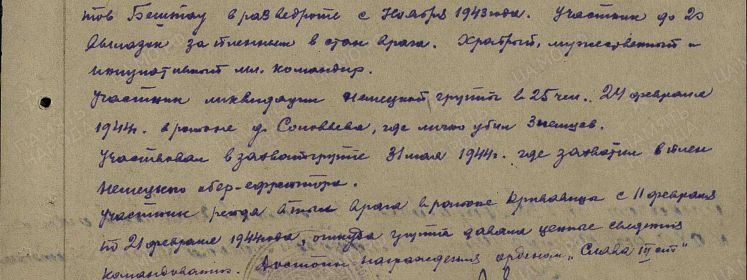 тов Бештау в разведроте с Ноября 1943 года. Участник до 20
вылазок за пленным в стан врага. Храбрый, мужественный и
инициативный мл. командир.
Участник ликвидации немецкой группы в 25 чел. 24 февраля
1944г. в районе д. Соловьева, где лично убил 3 немцев.
Участвовал в захватгруппе 31 мая 1944г. где захватил в плен
немецкого обер-ефрейтора.
Участник рейда в тыл врага в районе с 11 февраля
по 21 февраля 1944 года, откуда группа давала ценные сведения
командованию. Достоин награждения орденом "Слава III ст"